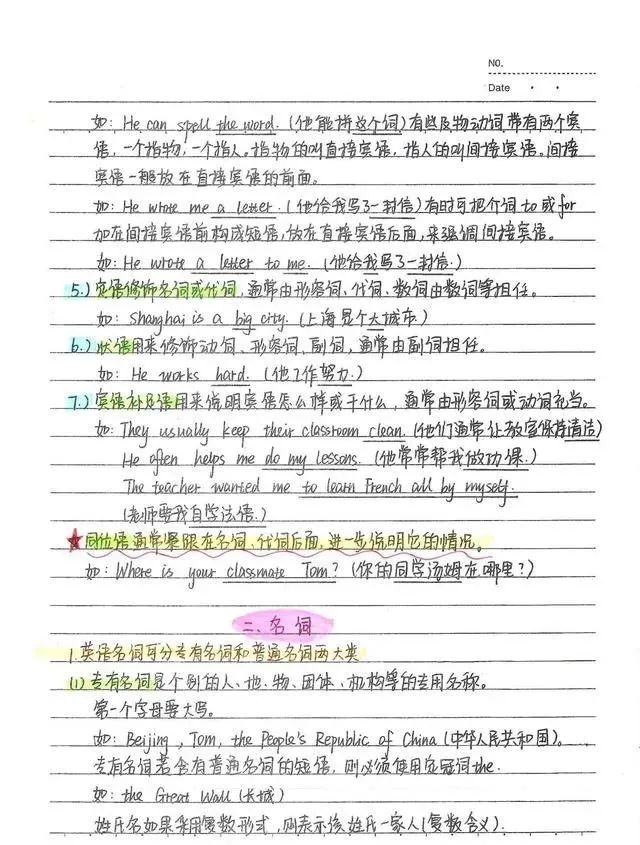 NO.
Date · ·
如：He can spell the word.（他能拼这个词）有些及物动词带有两个宾
语，一个指物，一个指人。指物的叫直接宾语，指人的叫间接宾语。间接
宾语一般放在直接宾语的前面。
如：He wrote me a letter.（他给我写了一封信）有时可把个词to或for
加在间接宾语前构成短语，放在直接宾语后面，来强调间接宾语。
如：He wrote a letter to me.（他给我写了一封信.）
5.）定语修饰名词或代词，通常由形容词、代词、数词由数词等担任。
如：Shanghai is a big city.（上海是个大城市）
6.）状语用来修饰动词、形容词、副词，通常由副词担任。
如：He works hard.（他工作努力.）
7.）宾语补足语用来说明宾语怎么样或干什么，通常由形容词或动词充当。
如：They usually keep their classroom clean.（他们通常让教室保持清洁）
He often helps me do my lessons.（他常常帮我做功课.）
The teacher wanted me to learn French all by myself.
（老师要我自学法语.）
★同位语通常紧跟在名词、代词后面，进一步说明它的情况。
如：Where is your classmate Tom？（你的同学汤姆在哪里？）
二、名词
1.英语名词可分专有名词和普通名词两大类
(1)专有名词是个别的人、地、物、团体、机构等的专用名称。
第一个字母要大写。
如：Beijing, Tom, the People's Republic of China（中华人民共和国）。
专有名词若含有普通名词的短语，则必须使用定冠词the.
如：the Great Wall（长城）
姓氏名如果采用复数形式，则表示该姓氏一家人（复数含义）.